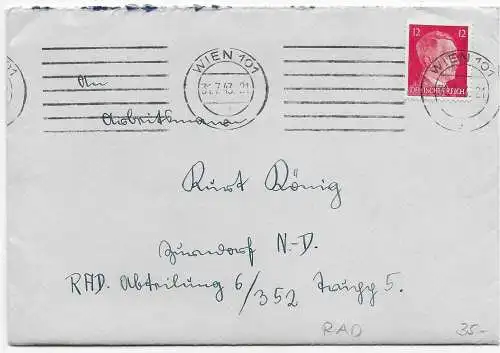 12 12
DEUTSCHES REICH
WIEN 101
31.7.43.21
WIEN 101
21
An
Arbeitsmann
Kurt König
Zurndorf N-D.
RAD. Abteilung 6/352 5.
RAD 35.-